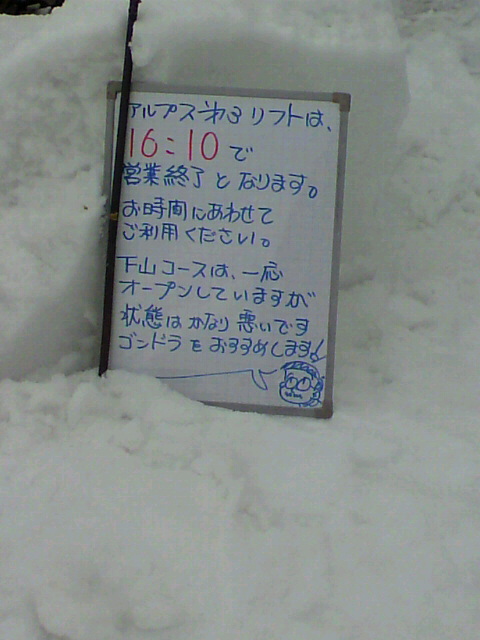 アルプス第3リフトは、
16:10で
営業終了となります。
お時間にあわせて
ご利用ください。
下山コースは、一応
オープンしていますが
状態はかなり悪いです
ゴンドラをおすすめします!